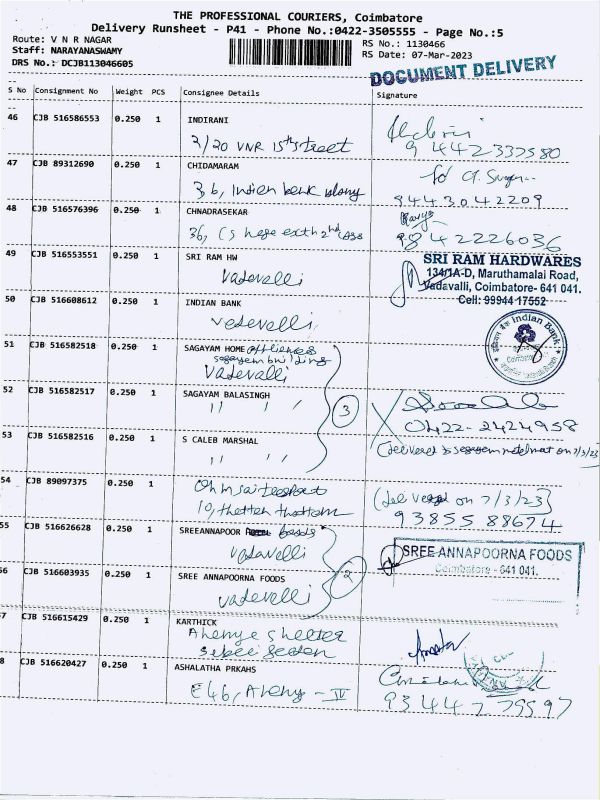 THE PROFESSIONAL COURIERS, Coimbatore
Delivery Runsheet - P41 - Phone No.:0422-3505555 - Page No.:5
Route: V N R NAGAR
Staff: NARAYANASWAMY
DRS No.: DCJB113046605
RS No.: 1130466
RS Date: 07-Mar-2023
DOCUMENT DELIVERY
S No Consignment No Weight PCS Consignee Details Signature
46 CJB 516586553 0.250 1 INDIRANI
2/20 VNR 15th street
9442337580
47 CJB 89312690 0.250 1 CHIDAMARAM
36, Indian bank
9443042209
48 CJB 516576396 0.250 1 CHNADRASEKAR
36, 2nd
9842226036
49 CJB 516553551 0.250 1 SRI RAM HW
Vadavalli
SRI RAM HARDWARES
134/1A-D, Maruthamalai Road,
Vadavalli, Coimbatore- 641 041.
Cell: 99944 17552
50 CJB 516608612 0.250 1 INDIAN BANK
Vadavalli
Indian Bank
51 CJB 516582518 0.250 1 SAGAYAM HOME
sagayam building
Vadavalli
52 CJB 516582517 0.250 1 SAGAYAM BALASINGH
" " "
3
0422-2424958
53 CJB 516582516 0.250 1 S CALEB MARSHAL
" " "
on 7/3/23
54 CJB 89097375 0.250 1
10, thottam
on 7/3/23)
93855 88674
55 CJB 516626628 0.250 1 SREEANNAPOOR foods
Vadavalli
SREE ANNAPOORNA FOODS
Coimbatore - 641 041.
56 CJB 516603935 0.250 1 SREE ANNAPOORNA FOODS
Vadavalli
2
7 CJB 516615429 0.250 1 KARTHICK
shelter
8 CJB 516620427 0.250 1 ASHALATHA PRKAHS
E46, - IV
9344779597